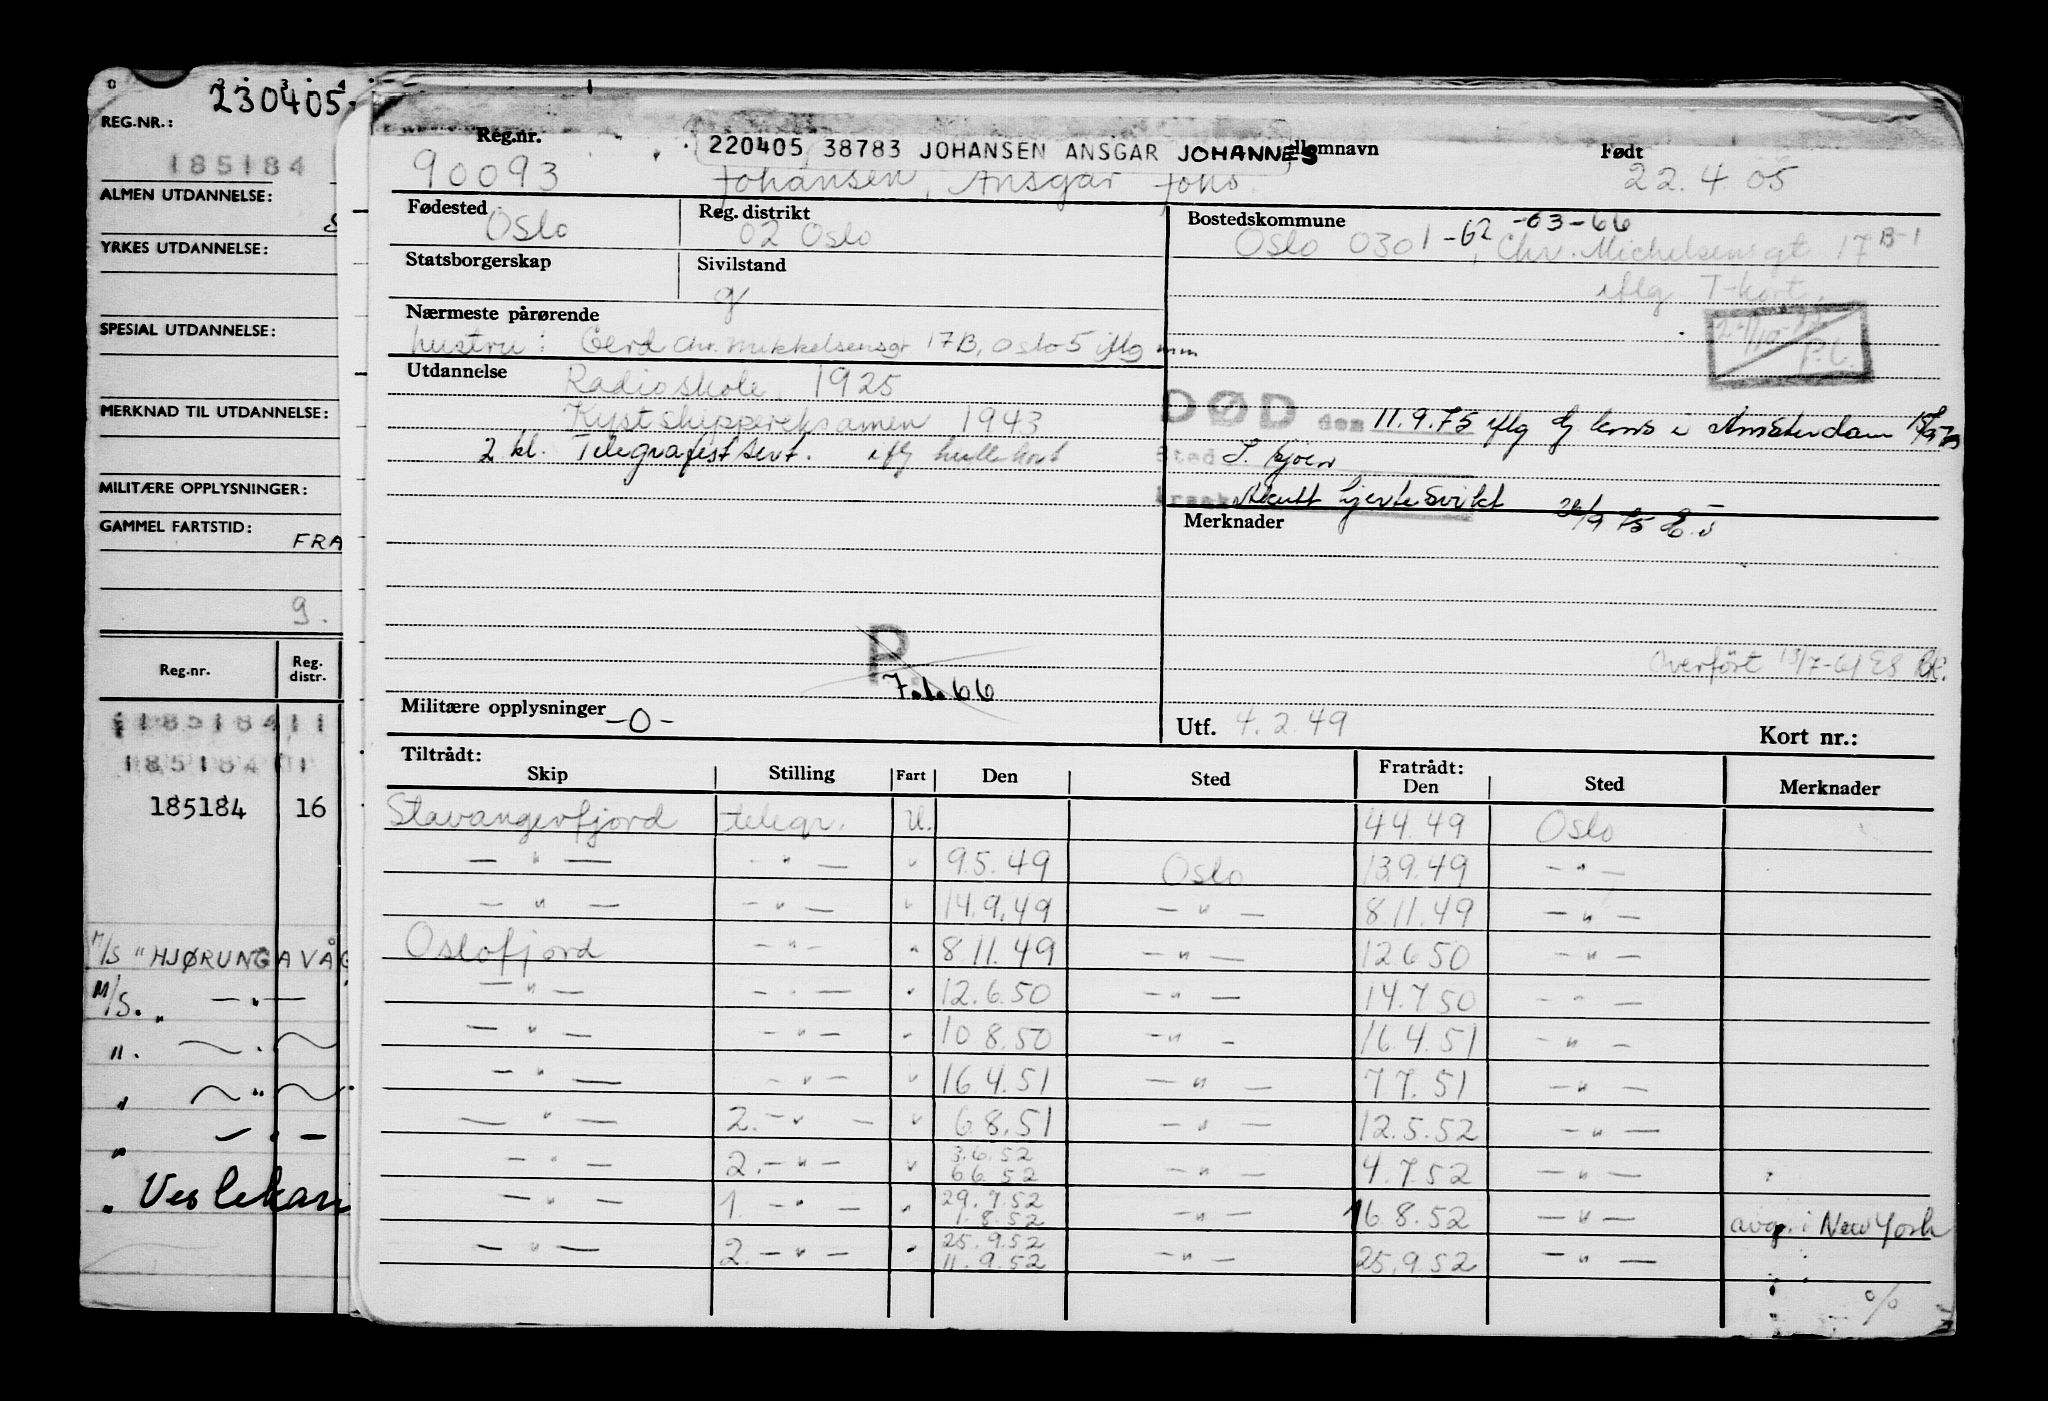 230405
REG.NR.:
185184
ALMEN UTDANNELSE:
S
YRKES UTDANNELSE:
SPESIAL UTDANNELSE:
MERKNAD TIL UTDANNELSE:
MILITÆRE OPPLYSNINGER:
GAMMEL FARTSTID:
FRA
9.
Reg.nr. Reg. distr.
185184 11
185184 11
185184 16
M/S "HJØRUNGAVÅG
M/S. " — " —
"
"
" — " —
" Veslekari
Reg.nr. 220405 38783 JOHANSEN ANSGAR JOHANNES llomnavn Født
90093 Johansen, Ansgar Johs. 22.4.05
Fødested Oslo Reg. distrikt 02 Oslo
Bostedskommune -63-66
Oslo 0301-62, Chr. Michelsensgt 17 B-1
iflg T-kort.
Statsborgerskap Sivilstand
g
Nærmeste pårørende
hustru: Gerd Chr. Mikkelsensgt 17B, Oslo 5 iflg mm
Utdannelse Radioskole 1925
Kystskippereksamen 1943
2 kl. Telegrafistsert. iflg hullkort
DØD den 11.9.75 iflg kons i Amsterdam
Sted I sjøen
Årsak Akutt hjertesvikt
Merknader
Overført 13/7-61 ES
P.
7.1.66
Militære opplysninger -0-
Utf. 4.2.49 Kort nr.:
Tiltrådt: Fratrådt:
Skip Stilling Fart Den Sted Den Sted Merknader
Stavangerfjord telegr. U. 4 4.49 Oslo
— " — — " — " 9.5.49 Oslo 13.9.49 — " —
— " — — " — " 14.9.49 — " — 8.11.49 — " —
Oslofjord — " — " 8 11.49 — " — 12 6 50 — " —
— " — — " — " 12.6.50 — " — 14.7.50 — " —
— " — — " — " 10 8.50 — " — 16.4.51 — " —
— " — — " — " 16.4.51 — " — 7 7.51 — " —
— " — 2. — " — " 6.8.51 — " — 12.5.52 — " —
— " — 2. — " — " 3.6.52 6.6.52 — " — 4.7.52 — " —
— " — 1. — " — " 29.7.52 1.8.52 — " — 16.8.52 — " — avg. i New York
— " — 2. — " — " 25.9.52 11.9.52 — " — 25.9.52 — " —
%